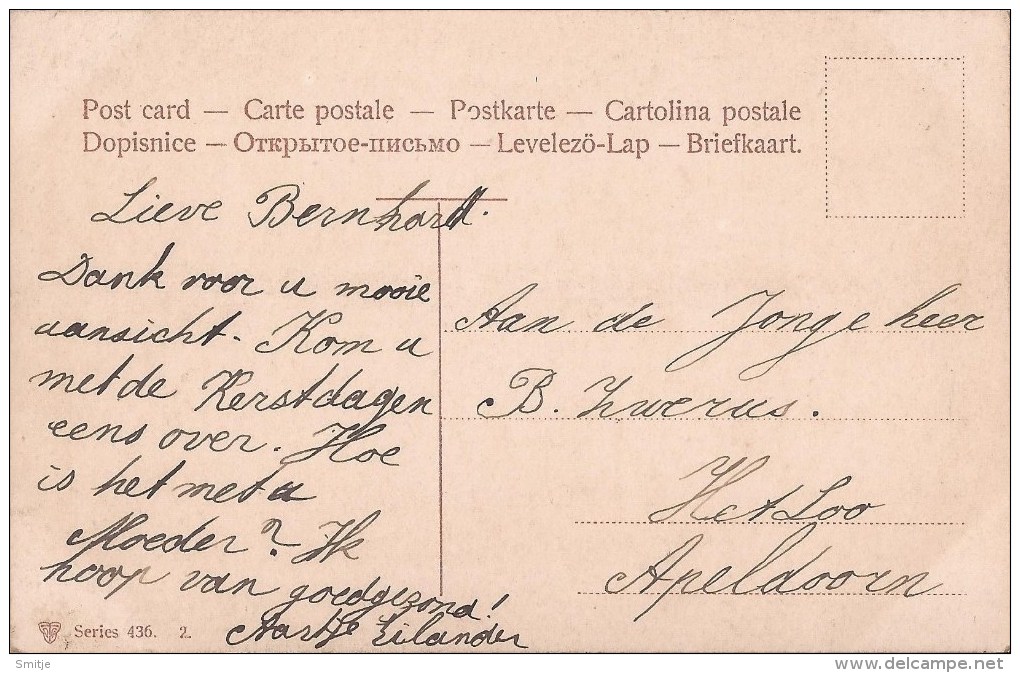 Post card — Carte postale — Postkarte — Cartolina postale
Dopisnice — Открытое-письмо — Levelezö-Lap — Briefkaart.
Lieve Bernhard.
Dank voor u mooie
aansicht. Kom u
met de Kerstdagen
eens over. Hoe
is het met u
Moeder? Ik
hoop van goedgezond!
Aartje Eilander
Aan de Jonge heer
B. Zwerus.
Het Loo
Apeldoorn
Series 436. 2.
Smitje
www.delcampe.net